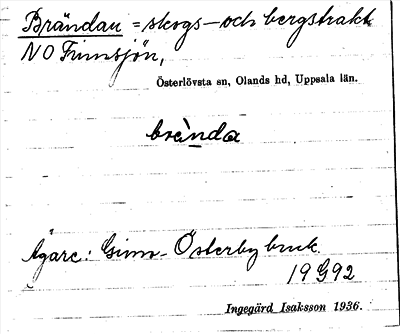 Brändan = skogs- och bergstrakt
NO Finnsjön,
Österlövsta sn, Olands hd, Uppsala län.
brènda
Ägare: Gimo-Österby bruk
19 G 92
Ingegärd Isaksson 1936.